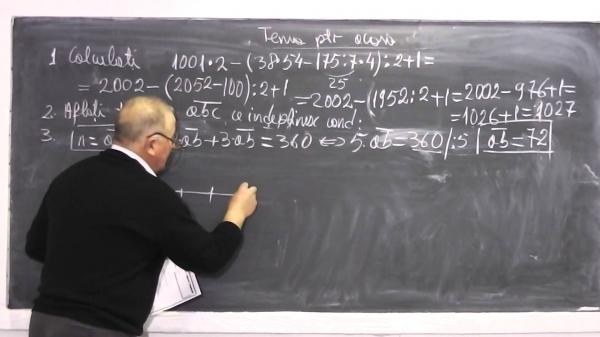 Tema ptr acasă
1 Calculati 1001·2-(38·54-175:7·4):2+1=
25
=2002-(2052-100):2+1=2002-(1952:2+1=2002-976+1=
=1026+1=1027
2. Aflati abc, ce indeplinesc cond:
3. n=a ab+3·ab=360 <=> 5·ab=360/:5 | ab=72